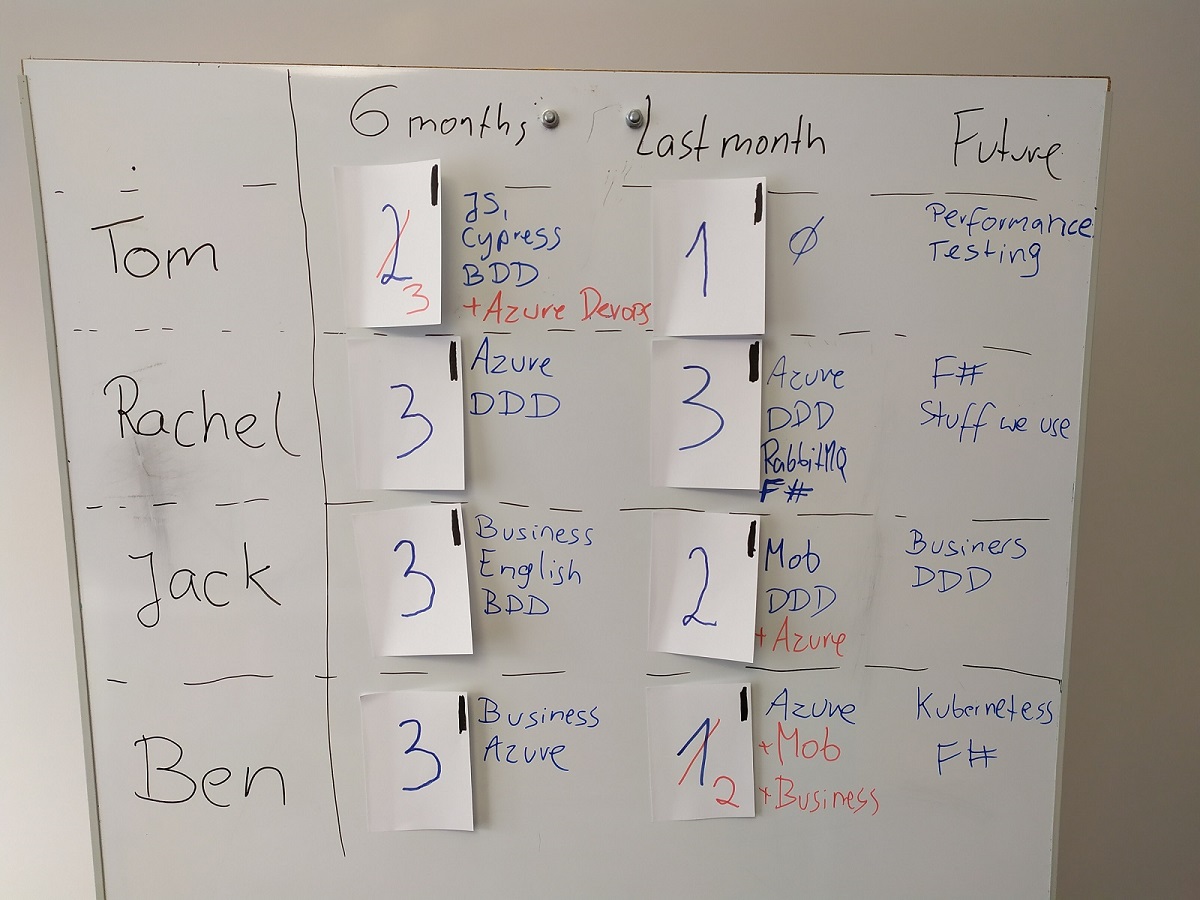 6 months Last month Future
Tom
2
3
JS,
Cypress
BDD
+Azure Devops
1
Ø
Performance
Testing
Rachel
3
Azure
DDD
3
Azure
DDD
RabbitMQ
F#
F#
Stuff we use
Jack
3
Business
English
BDD
2
Mob
DDD
+Azure
Business
DDD
Ben
3
Business
Azure
1
2
Azure
+Mob
+Business
Kubernetess
F#